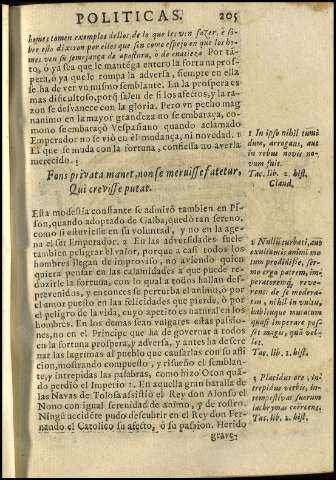 POLITICAS. 205
bones tomen exemplos dellos, de lo que les ven fazer, é so-
bre esto dixeron por ellos que son como espejo en que los ho-
mes ven su semejança de apostura, ò de enatieza Por tã-
to, ò ya sea que le mantẽga entero la fortuna prospe-
pera, ò ya que le rompa la adversa, siempre en ella
se ha de ver un mismo semblante. En la prospera es
mas dificultoso, porq̃ salen de si los afectos, y la ra-
zon se desvanece con la gloria. Pero un pecho mag-
nanimo en la mayor grandeza no se embaraça, co-
mo no se embaraçò Vespasiano quando aclamado
Emperador no se viò en èl mudança, ni novedad. 1
El que se muda con la fortuna, confiessa no averla
merecido.
Fons privata manet, non se meruisse fatetur,
Qui crevisse putat.
Esta modestia constante se admirò tambien en Pi-
son, quando adoptado de Galba, quedò tan sereno,
como si estuviesse en su voluntad, y no en la age-
na el ser Emperador. 2 En las adversidades suele
tambien peligrar el valor, porque a casi todos los
hombres llegan de improviso, no aviendo quien
quiera pensar en las calamidades a que puede re-
duzirle la fortuna, con lo qual a todos hallan des-
prevenidos, y entonces se perturba el animo, ò por
el amor puesto en las felicidades que pierde, ò por
el peligro de la vida, cuyo apetito es natural en los
hombres. En los demas sean vulgares estas passio-
nes, no en el Principe que ha de governar a todos
en la fortuna prospera, y adversa, y antes ha de sere-
nar las lagrimas al pueblo que causarlas con su afli-
cion, mostrando compuesto, y risueño el semblan-
te, y intrepidas las palabras, como hizo Oton quã-
do perdiò el Imperio 3. En aquella gran batalla de
las Navas de Tolosa assistiò el Rey don Alonso el
Nono con igual serenidad de animo, y de rostro.
Ningũ accidẽte pudo descubrir en el Rey don Fer-
nando el Catolico su afecto, ò su passion. Herido
grave-
1 In ipso nihil tumi-
dum, arrogans, aut
in rebus novis no-
vum fuit.
Tac. lib. 2. hist.
Claud.
2 Nullũ turbati, aut
exultantis animi mo
tum prodidisse, ser-
mo erga patrem, im-
peratoremq; reve-
rens: de se modera-
tem, nihil in vultu,
habituque mutatum
quasi imperare pos-
set magis, quã vel-
let.
Tac. lib. 1. hist.
3 Placidus ore, in-
trepidus verbis, in-
tempestivas suorum
lacrymas coercens.
Tac. lib. 2. hist.